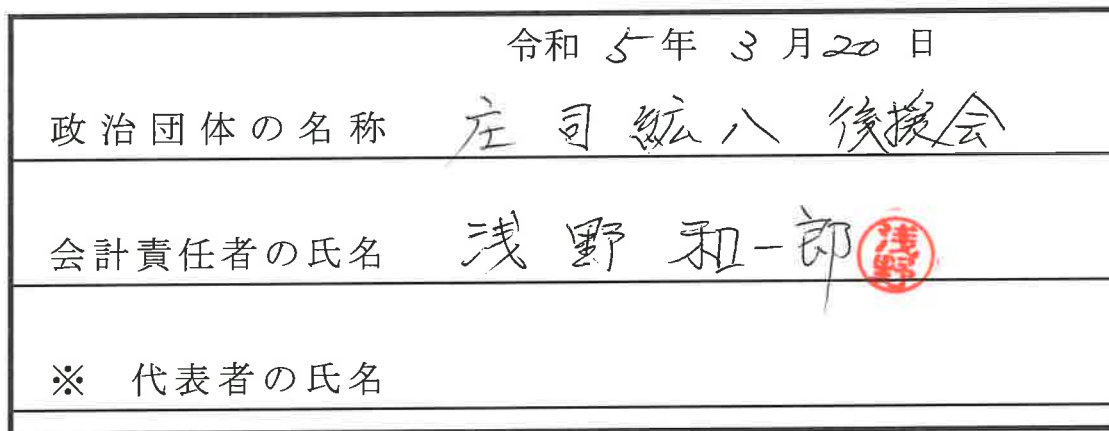 令和 5年 3月20日
政治団体の名称 庄司紘八後援会
会計責任者の氏名 浅野和一郎 浅野
※ 代表者の氏名